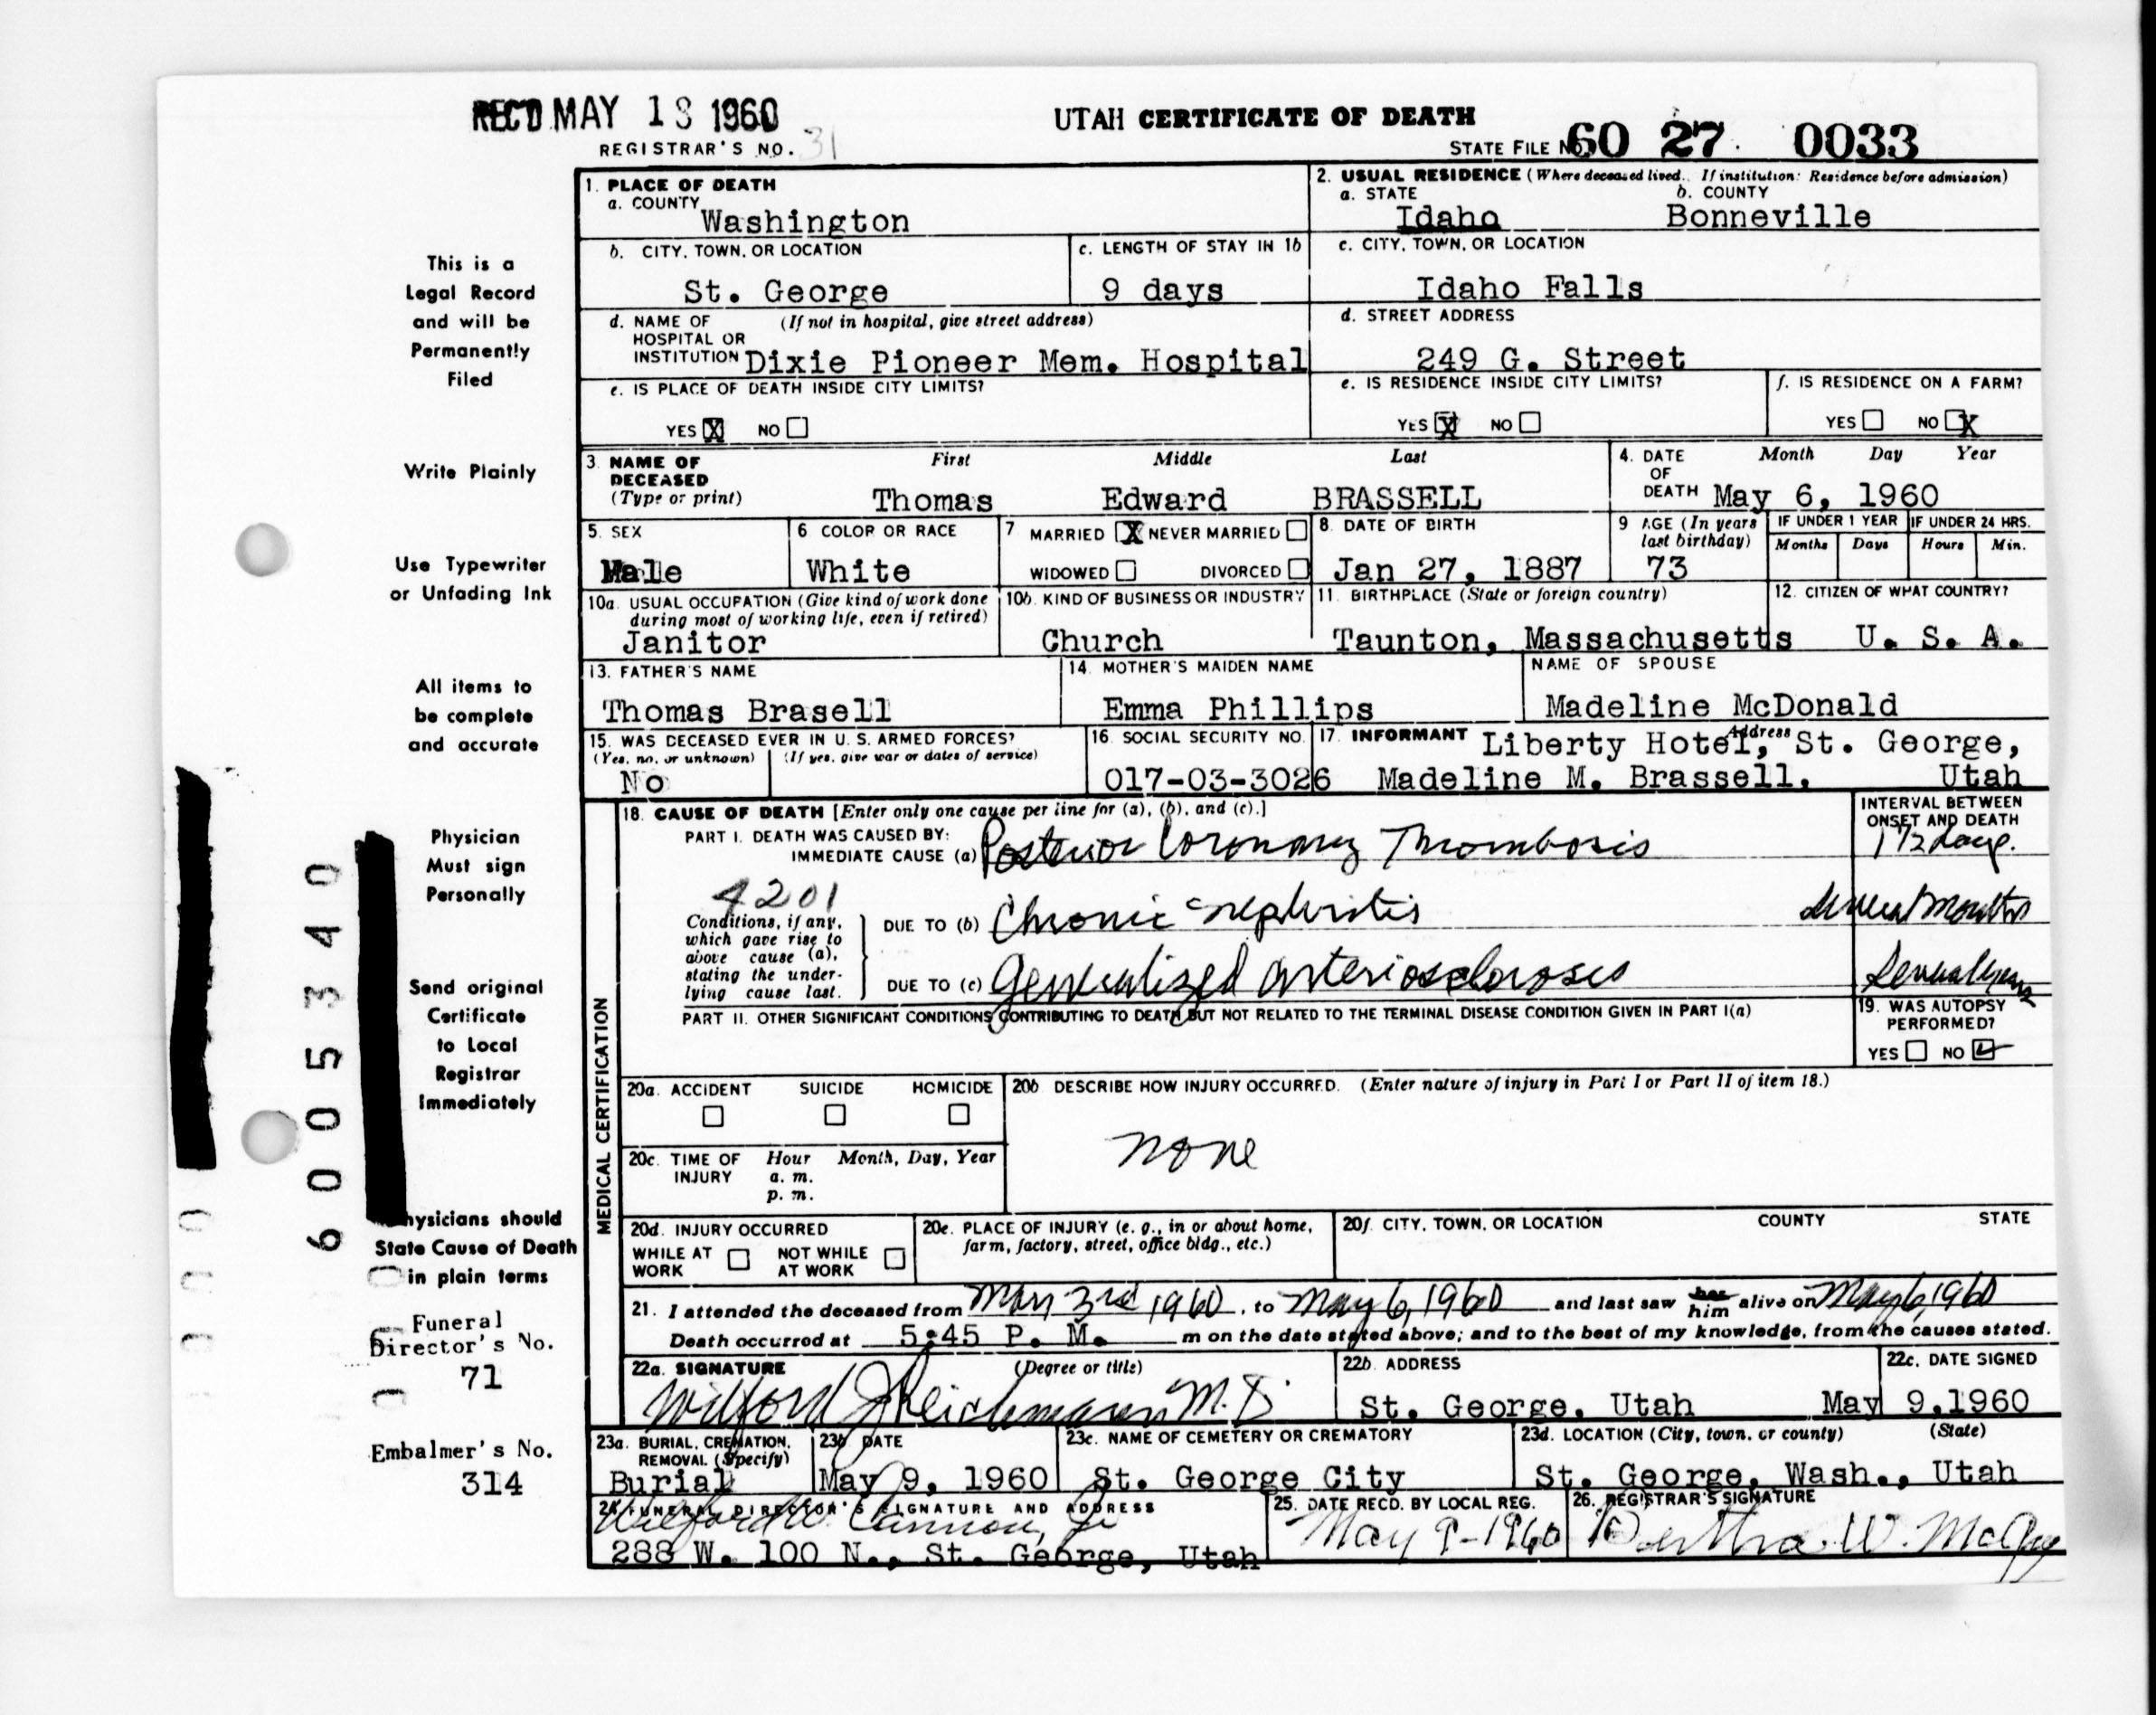 REC'D MAY 13 1960
UTAH CERTIFICATE OF DEATH
REGISTRAR'S NO. 31
STATE FILE NO. 60 27 0033
1. PLACE OF DEATH
a. COUNTY
Washington
2. USUAL RESIDENCE (Where deceased lived. If institution: Residence before admission)
a. STATE b. COUNTY
Idaho Bonneville
b. CITY, TOWN, OR LOCATION
St. George
c. LENGTH OF STAY IN 1b
9 days
c. CITY, TOWN, OR LOCATION
Idaho Falls
d. NAME OF (If not in hospital, give street address)
HOSPITAL OR
INSTITUTION Dixie Pioneer Mem. Hospital
d. STREET ADDRESS
249 G. Street
e. IS PLACE OF DEATH INSIDE CITY LIMITS?
YES X NO
e. IS RESIDENCE INSIDE CITY LIMITS?
YES X NO
f. IS RESIDENCE ON A FARM?
YES NO X
3. NAME OF DECEASED (Type or print)
First Middle Last
Thomas Edward BRASSELL
4. DATE OF DEATH
Month Day Year
May 6, 1960
5. SEX
Male
6 COLOR OR RACE
White
7 MARRIED X NEVER MARRIED
WIDOWED DIVORCED
8. DATE OF BIRTH
Jan 27, 1887
9 AGE (In years last birthday)
73
IF UNDER 1 YEAR IF UNDER 24 HRS.
Months Days Hours Min.
10a. USUAL OCCUPATION (Give kind of work done
during most of working life, even if retired)
Janitor
10b. KIND OF BUSINESS OR INDUSTRY
Church
11. BIRTHPLACE (State or foreign country)
Taunton, Massachusetts
12. CITIZEN OF WHAT COUNTRY?
U. S. A.
13. FATHER'S NAME
Thomas Brasell
14. MOTHER'S MAIDEN NAME
Emma Phillips
NAME OF SPOUSE
Madeline McDonald
15. WAS DECEASED EVER IN U. S. ARMED FORCES?
(Yes, no, or unknown) (If yes, give war or dates of service)
No
16. SOCIAL SECURITY NO.
017-03-3026
17. INFORMANT Address
Liberty Hotel, St. George,
Madeline M. Brassell, Utah
MEDICAL CERTIFICATION
18. CAUSE OF DEATH [Enter only one cause per line for (a), (b), and (c).]
INTERVAL BETWEEN
ONSET AND DEATH
PART I. DEATH WAS CAUSED BY:
IMMEDIATE CAUSE (a) Posterior Coronary Thrombosis 1 1/2 days.
4201
Conditions, if any,
which gave rise to
above cause (a),
stating the under-
lying cause last.
DUE TO (b) Chronic nephritis several months
DUE TO (c) Generalized arteriosclerosis Several years
PART II. OTHER SIGNIFICANT CONDITIONS CONTRIBUTING TO DEATH BUT NOT RELATED TO THE TERMINAL DISEASE CONDITION GIVEN IN PART I(a)
19. WAS AUTOPSY
PERFORMED?
YES NO ✓
20a. ACCIDENT SUICIDE HOMICIDE
20b DESCRIBE HOW INJURY OCCURRED. (Enter nature of injury in Part I or Part II of item 18.)
none
20c. TIME OF INJURY
Hour Month, Day, Year
a. m.
p. m.
20d. INJURY OCCURRED
WHILE AT WORK NOT WHILE AT WORK
20e. PLACE OF INJURY (e. g., in or about home,
farm, factory, street, office bldg., etc.)
20f. CITY, TOWN, OR LOCATION COUNTY STATE
21. I attended the deceased from May 3rd 1960, to May 6, 1960 and last saw her him alive on May 6, 1960
Death occurred at 5:45 P. M. m on the date stated above; and to the best of my knowledge, from the causes stated.
22a. SIGNATURE (Degree or title)
Wilford J Reichmann M.D.
22b. ADDRESS
St. George, Utah
22c. DATE SIGNED
May 9, 1960
23a. BURIAL, CREMATION,
REMOVAL (Specify)
Burial
23b. DATE
May 9, 1960
23c. NAME OF CEMETERY OR CREMATORY
St. George City
23d. LOCATION (City, town, or county) (State)
St. George, Wash., Utah
24. FUNERAL DIRECTOR'S SIGNATURE AND ADDRESS
Wilford W. Cannon, Jr
288 W. 100 N., St. George, Utah
25. DATE RECD. BY LOCAL REG.
May 9-1960
26. REGISTRAR'S SIGNATURE
Bertha W. McQ
This is a
Legal Record
and will be
Permanently
Filed
Write Plainly
Use Typewriter
or Unfading Ink
All items to
be complete
and accurate
Physician
Must sign
Personally
Send original
Certificate
to Local
Registrar
Immediately
Physicians should
State Cause of Death
in plain terms
Funeral
Director's No.
71
Embalmer's No.
314
6005340